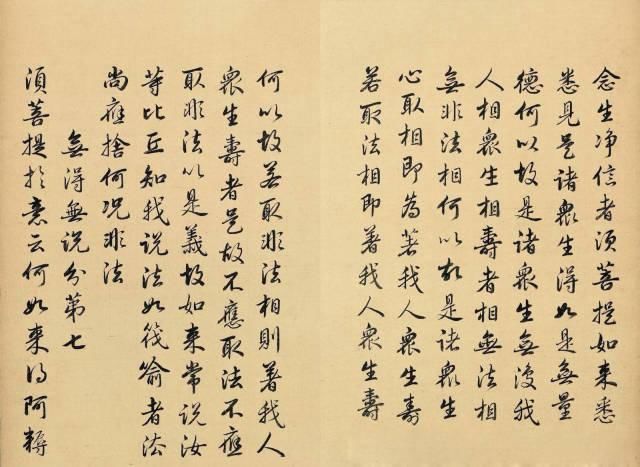 念生净信者須菩提如来悉
悉見是諸眾生得如是無量
德何以故是諸眾生無復我
人相眾生相壽者相無法相
無非法相何以故是諸眾生
心取相即為著我人眾生壽
若取法相即著我人眾生壽
何以故若取非法相則著我人
眾生壽者是故不應取法不應
取非法以是義故如来常說汝
等比丘知我說法如筏喻者法
尚應捨何况非法
無得無說分第七
須菩提於意云何如来得阿耨